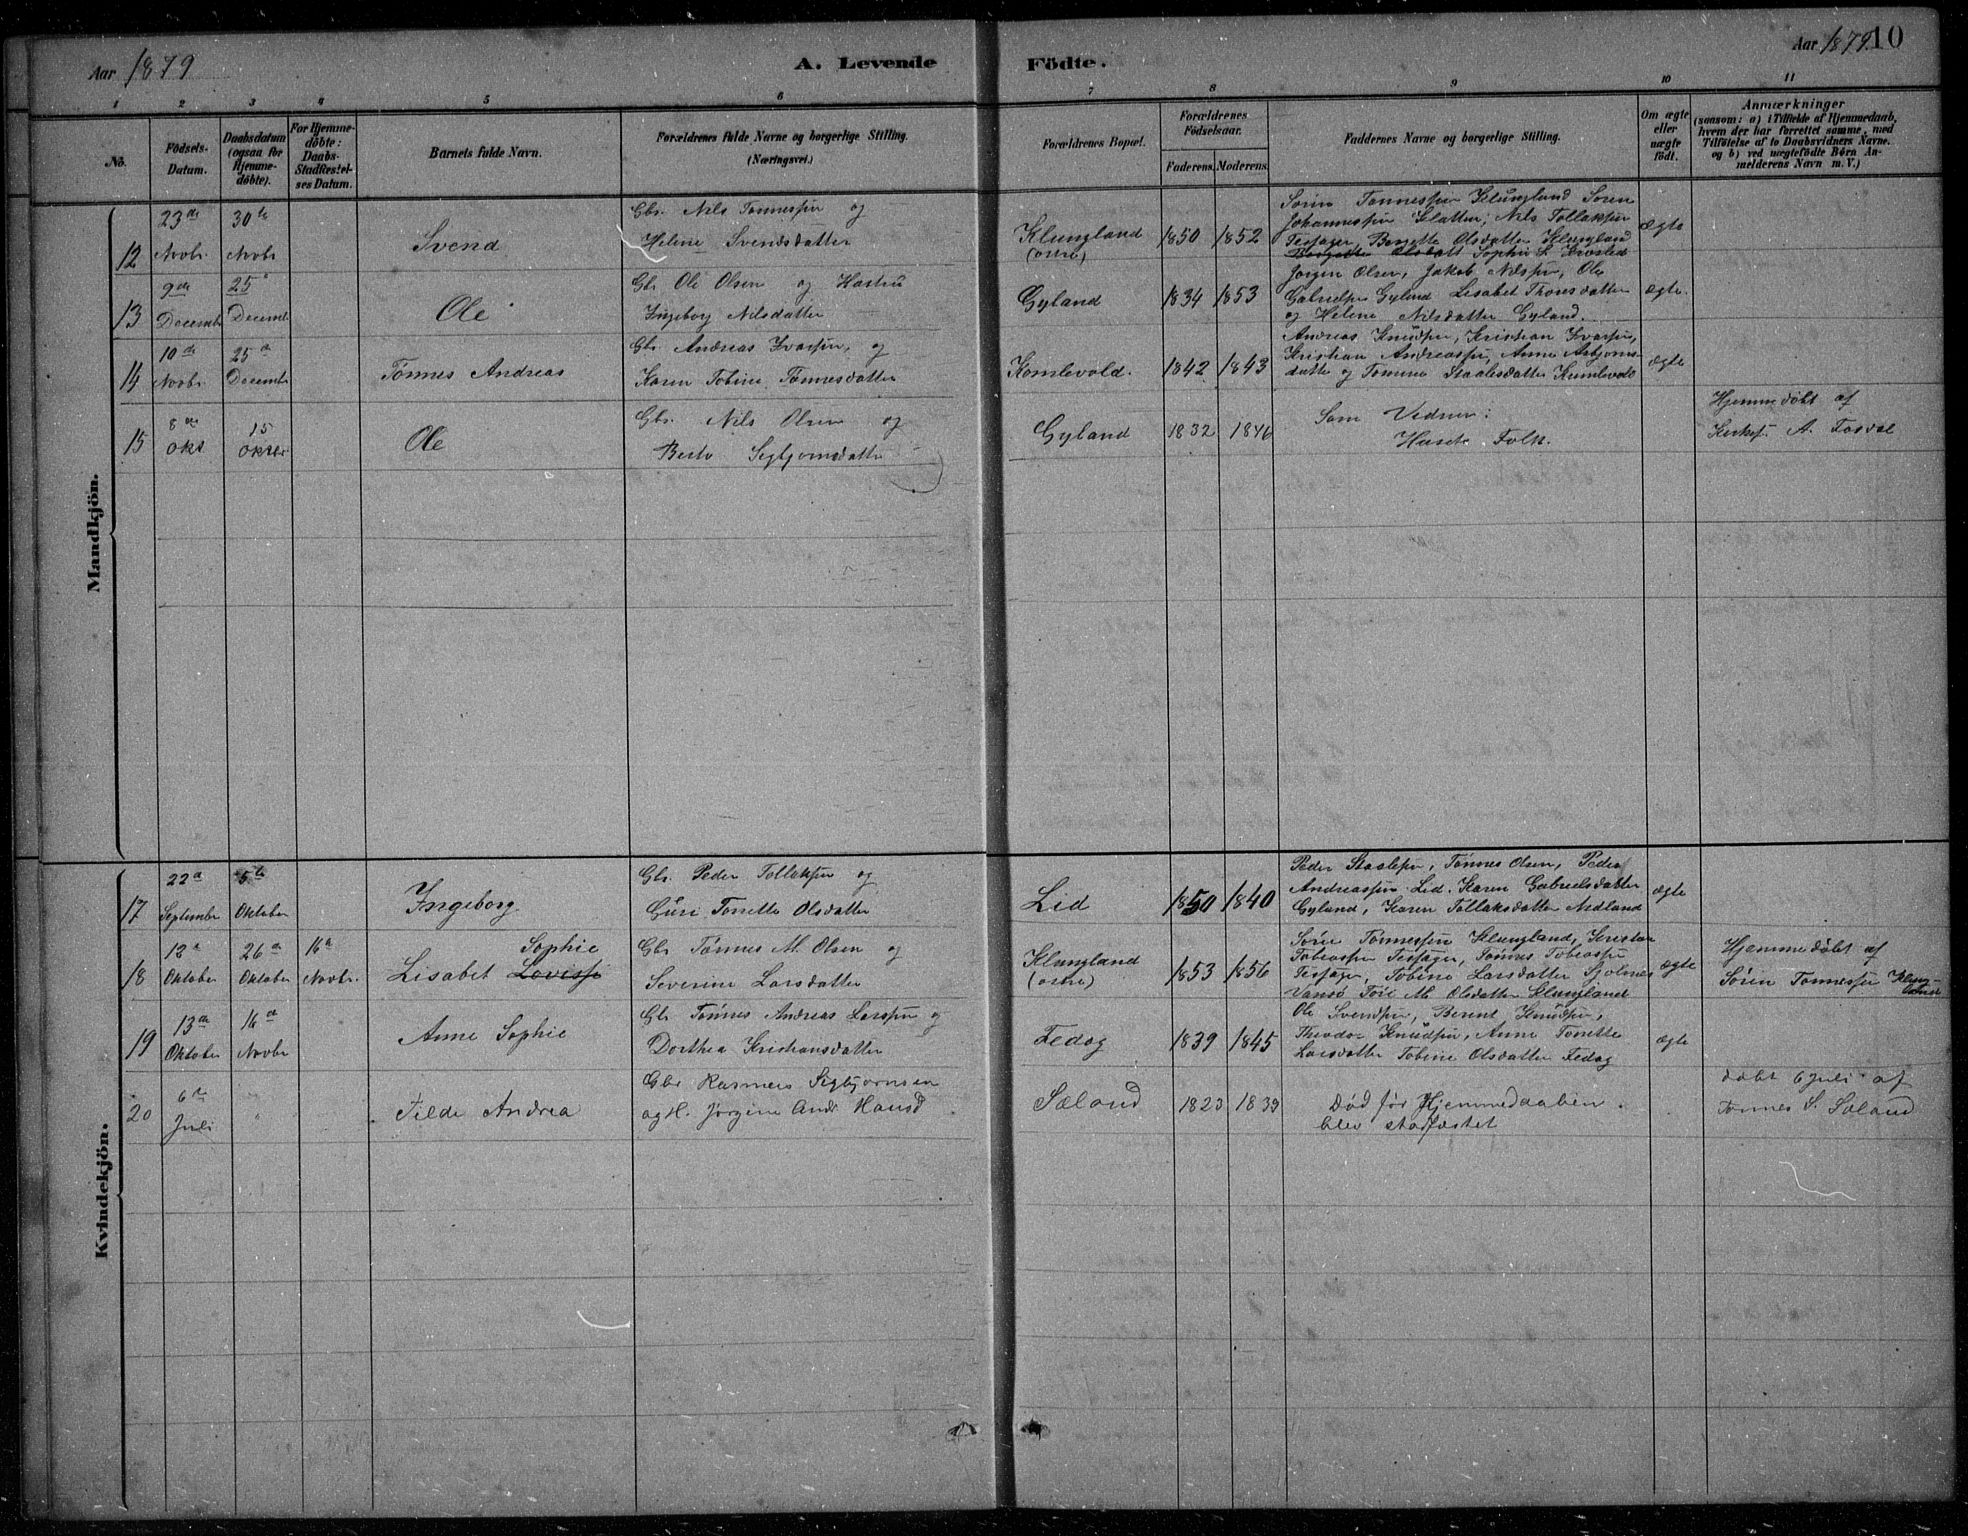 Aar 1879
A. Levende Födte.
Aar 1879. 10
1 2 3 4 5 6 7 8 9 10 11
No.
Födsels-Datum.
Daabsdatum (ogsaa for Hjemme-döbte).
For Hjemme-döbte: Daabs-Stadfæstel-ses Datum.
Barnets fulde Navn.
Forældrenes fulde Navne og borgerlige Stilling.
(Næringsvei.)
Forældrenes Bopæl.
Forældrenes Födselsaar.
Faderens. Moderens.
Faddernes Navne og borgerlige Stilling.
Om ægte eller uægte födt.
Anmærkninger
(saasom: a) i Tilfælde af Hjemmedaab,
hvem der har forrettet samme, med
Tilföielse af to Daabsvidners Navne.
og b) ved uægtefödte Börn An-
melderens Navn m. V.)
Mandkjön.
12 23de Novbr. 30te Novbr. Svend
Gbr. Nils Tønnessen og
Helene Svendsdatter
Klungland (østre) 1850 1852
Søren Tønnessen Klungland Søren
Johannessen Slatten, Nils Tollaksen
Tesager, Berette Olsdatter Klungland
Olsdatt Sophie L.
ægte
13 9de Decemb. 25 Decemb. Ole
Gbr. Ole Olsen og Hustru
Ingeborg Nilsdatter
Gyland 1834 1853
Jørgen Olsen, Jakob Nilsen, Ole
Gabrielsen Gyland Lisabet Thorsdatter
og Helene Nilsdatter Gyland.
ægte.
14 10de Novbr. 25de Decemb. Tønnes Andreas
Gbr. Andreas Ivarsen, og
Karen Tobine Tønnesdatter
Komlevold. 1842 1843
Andreas Knudsen, Kristian Ivarsen,
Kristian Andreassen, Anne Asbjørns-
datter og Tønnine Staalesdatter Kumlevold
ægte
15 8de Okt 15 Oktbr Ole
Gbr. Nils Olsen og
Berte Sigbjørnsdatter
Gyland 1832 1846
Som Vidner:
Husets Folk.
Hjemmedøbt af
Kirkes. A. Tosdal
Kvindekjön.
17 22de September 5te Oktober Ingeborg
Gbr. Peder Tollaksen og
Guri Tonette Olsdatter
Lid 1850 1840
Peder Staalesen, Tønnes Olsen, Peder
Andreassen Lid, Karen Gabrielsdatter
Gyland, Karen Tollaksdatter Nedland
ægte
18 12te Oktober 26de Oktober 16de Novbr. Lisabet Lovise Sophie
Gbr. Tønnes M. Olsen og
Severine Larsdatter
Klungland (østre) 1853 1856
Søren Tønnessen Klungland, Kristen
Tobiassen Tesager, Tønnes Tobiassen
Tesager, Tobine Larsdatter Sjølnes
Vansø Tore M. Olsdatter Klungland
ægte
Hjemmedøbt af
Søren Tønnessen Klungland
19 13de Oktober 16de Novbr Anne Sophie
Gbr Tønnes Andreas Larsen og
Dorthea Kristiansdatter
Fedog 1839 1845
Ole Svendsen, Berent Knudsen,
Theodor Knudsen, Anne Tonette
Larsdatter Tobine Olsdatter Fedog
ægte
20 6te Juli " Tilde Andrea
Gbr Rasmus Sigbjørnsen
og H. Jørgine Andr. Hansd
Sæland 1823 1839
Død før Hjemmedaaben
blev stadfæstet
døbt 6 Juli af
Tønnes S. Sæland